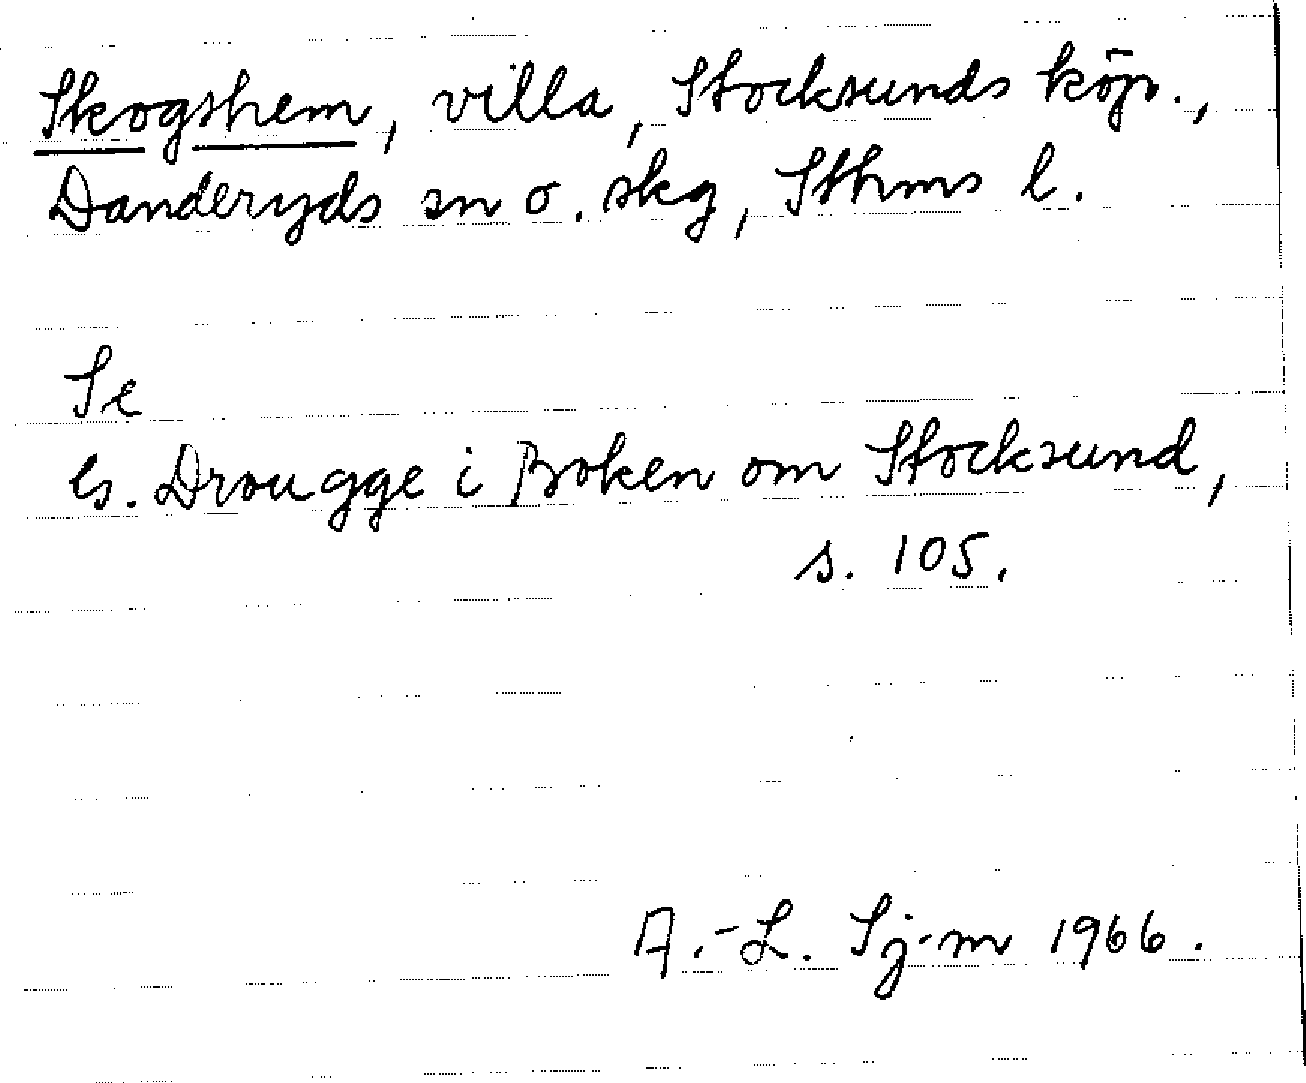 Skogshem, villa, Stocksunds köp.,
Danderyds sn o. skg, Sthms l.
Se
G. Drougge i Boken om Stocksund,
s. 105.
A.-L. Sj-m 1966.